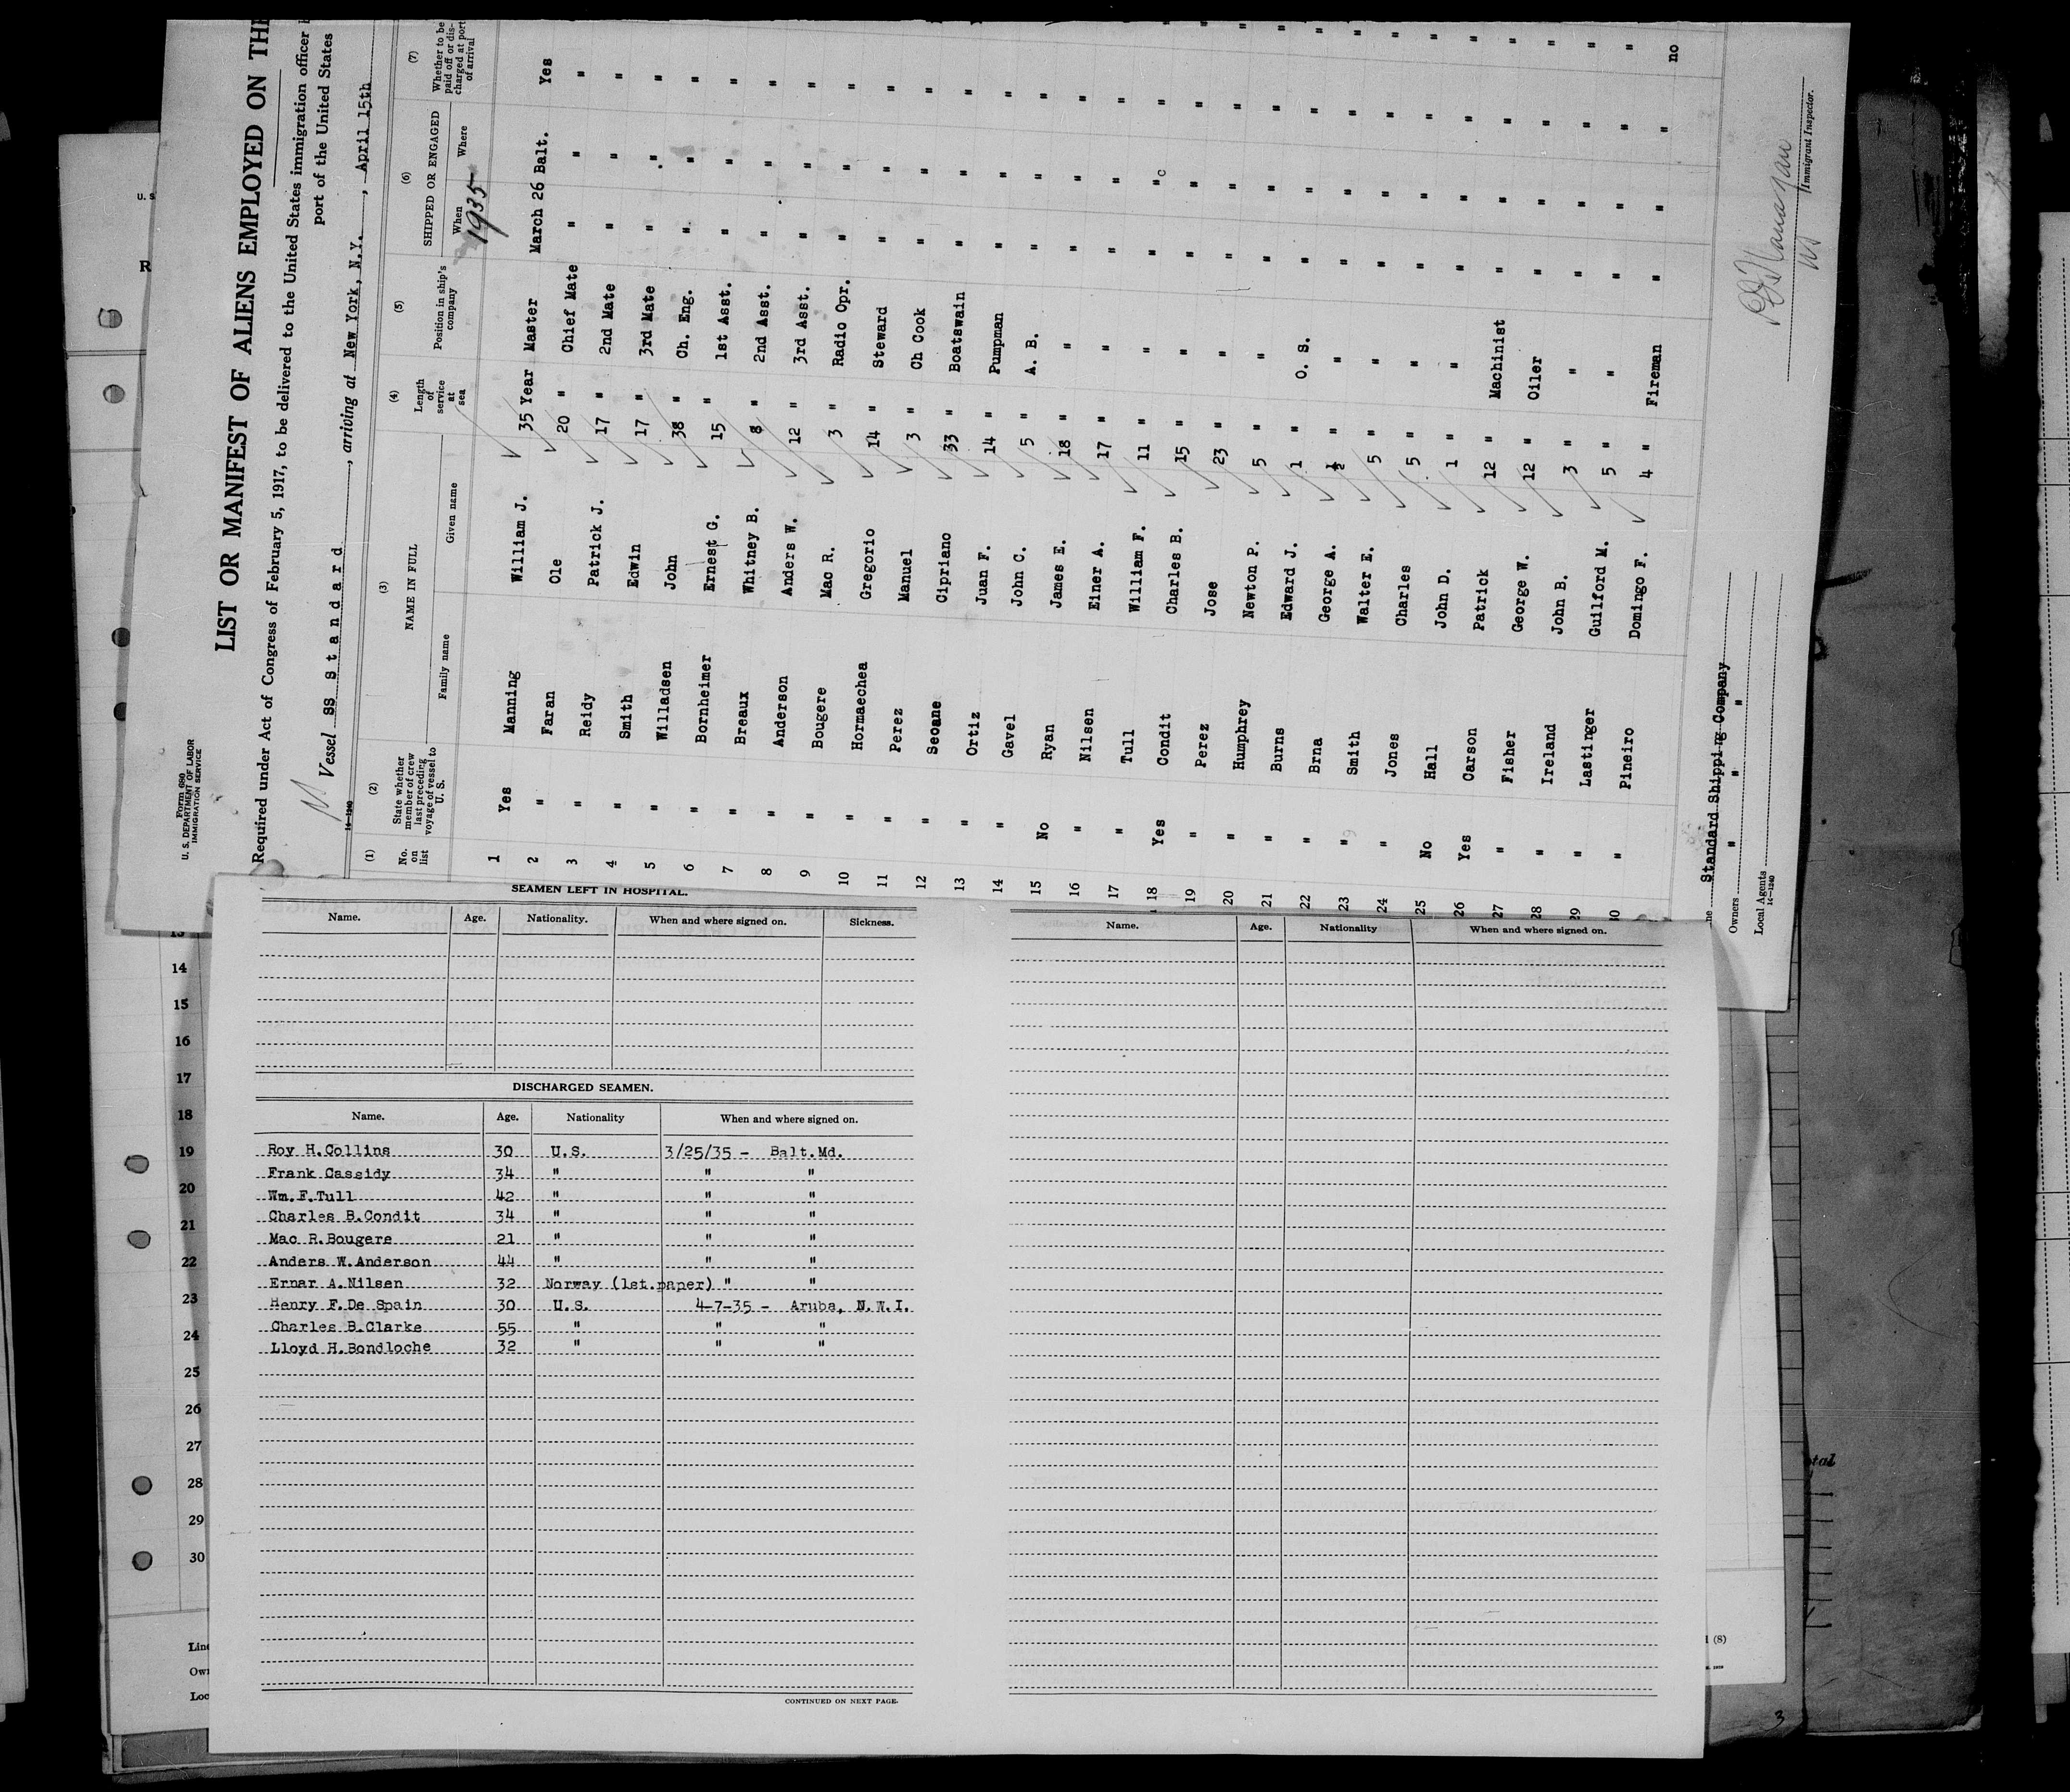 Form 680
U. S. DEPARTMENT OF LABOR
IMMIGRATION SERVICE
LIST OR MANIFEST OF ALIENS EMPLOYED ON THE
Required under Act of Congress of February 5, 1917, to be delivered to the United States immigration officer
port of the United States
Vessel SS Standard, arriving at New York, N.Y., April 15th
14-1240
(1) (2) (3) (4) (5) (6) (7)
No. on list State whether member of crew last preceding voyage of vessel to U. S. NAME IN FULL Family name Given name Length of service at sea Position in ship's company SHIPPED OR ENGAGED When Where Whether to be paid off or discharged at port of arrival
1935
1 Yes Manning William J. 35 Year Master March 26 Balt. Yes
2 " Faran Ole 20 " Chief Mate " " "
3 " Reidy Patrick J. 17 " 2nd Mate " " "
4 " Smith Edwin 17 " 3rd Mate " " "
5 " Willadsen John 38 " Ch. Eng. " " "
6 " Bornheimer Ernest G. 15 " 1st Asst. " " "
7 " Breaux Whitney B. 8 " 2nd Asst. " " "
8 " Anderson Anders W. 12 " 3rd Asst. " " "
9 " Bougere Mac R. 3 " Radio Opr. " " "
10 " Hormaechea Gregorio 14 " Steward " " "
11 " Perez Manuel 3 " Ch Cook " " "
12 " Seoane Cipriano 33 " Boatswain " " "
13 " Ortiz Juan F. 14 " Pumpman " " "
14 " Gavel John C. 5 " A. B. " " "
15 No Ryan James E. 18 " " " " "
16 " Nilsen Einer A. 17 " " " " "
17 " Tull William F. 11 " " " " "
18 Yes Condit Charles B. 15 " " " " "
19 " Perez Jose 23 " " " " "
20 " Humphrey Newton P. 5 " " " " "
21 " Burns Edward J. 1 " O. S. " " "
22 " Brna George A. ½ " " " " "
23 " Smith Walter E. 5 " " " " "
24 " Jones Charles 5 " " " " "
25 No Hall John D. 1 " " " " "
26 Yes Carson Patrick 12 " Machinist " " "
27 " Fisher George W. 12 " Oiler " " "
28 " Ireland John B. 3 " " " " "
29 " Lastinger Guilford M. 5 " " " " "
30 " Pineiro Domingo F. 4 " Fireman " " "
no
Standard Shipping Company
Owners " " "
Local Agents
14-1240
Immigrant Inspector.
SEAMEN LEFT IN HOSPITAL.
Name. Age. Nationality. When and where signed on. Sickness.
DISCHARGED SEAMEN.
Name. Age. Nationality When and where signed on.
Roy H.Collins 30 U.S. 3/25/35 - Balt.Md.
Frank Cassidy 34 " " "
Wm.F.Tull 42 " " "
Charles B.Condit 34 " " "
Mac R.Bougere 21 " " "
Anders W.Anderson 44 " " "
Ernar A.Nilsen 32 Norway (1st.paper) " "
Henry F.De Spain 30 U.S. 4-7-35 - Aruba, N.W.I.
Charles B.Clarke 55 " " "
Lloyd H.Bondloche 32 " " "
CONTINUED ON NEXT PAGE.
Name. Age. Nationality When and where signed on.
U. S
R
14
15
16
17
18
19
20
21
22
23
24
25
26
27
28
29
30
Line
Own
Loc
(8)
3